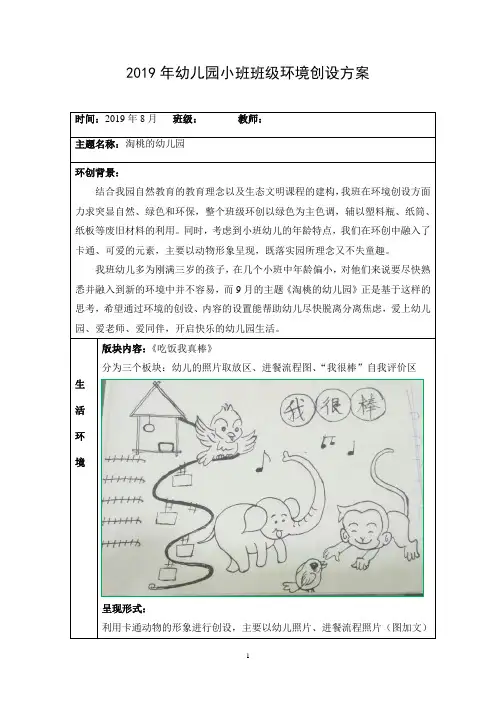 2019年幼儿园小班班级环境创设方案
时间：2019年8月 班级： 教师：
主题名称：淘桃的幼儿园
环创背景：
结合我园自然教育的教育理念以及生态文明课程的建构，我班在环境创设方面
力求突显自然、绿色和环保，整个班级环创以绿色为主色调，辅以塑料瓶、纸筒、
纸板等废旧材料的利用。同时，考虑到小班幼儿的年龄特点，我们在环创中融入了
卡通、可爱的元素，主要以动物形象呈现，既落实园所理念又不失童趣。
我班幼儿多为刚满三岁的孩子，在几个小班中年龄偏小，对他们来说要尽快熟
悉并融入到新的环境中并不容易，而9月的主题《淘桃的幼儿园》正是基于这样的
思考，希望通过环境的创设、内容的设置能帮助幼儿尽快脱离分离焦虑，爱上幼儿
园、爱老师、爱同伴，开启快乐的幼儿园生活。
生
活
环
境
版块内容：《吃饭我真棒》
分为三个板块：幼儿的照片取放区、进餐流程图、“我很棒”自我评价区
我很棒
呈现形式：
利用卡通动物的形象进行创设，主要以幼儿照片、进餐流程照片（图加文）
1